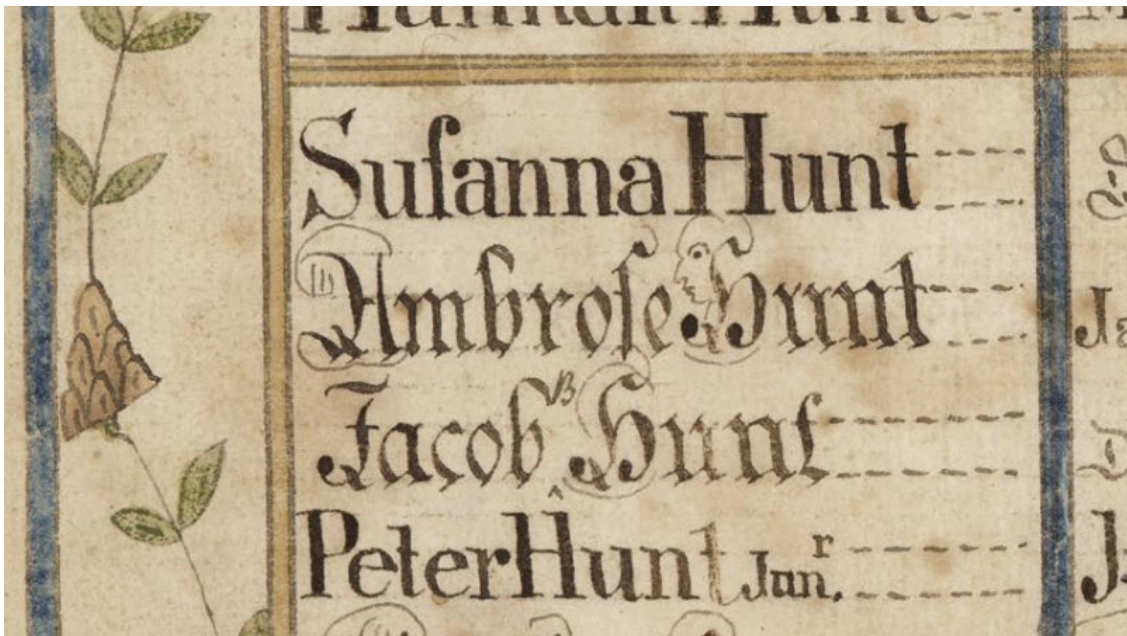 Hannah Hunt
Suſanna Hunt
Ambroſe Hunt
Jacob B Hunt
Peter Hunt Junr.